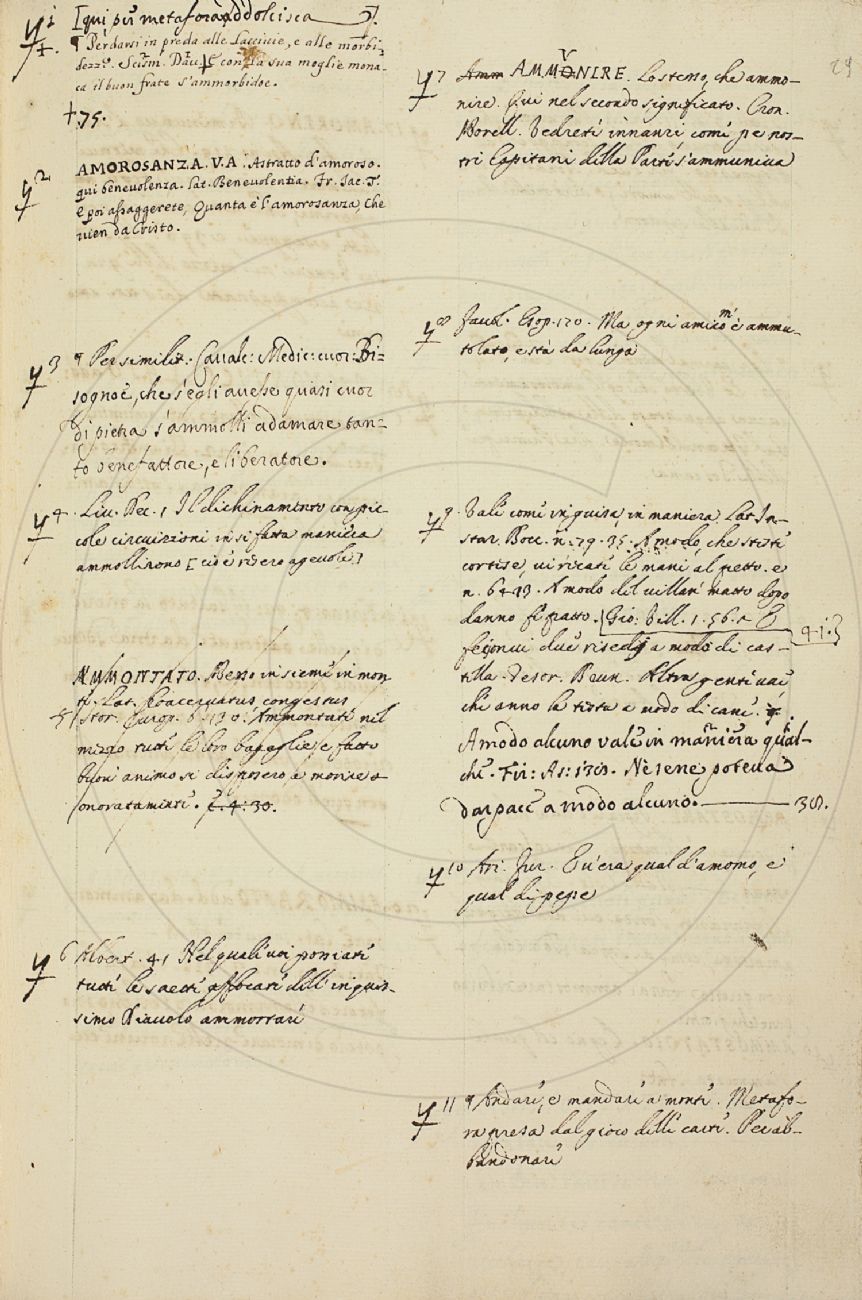 1 [qui per metafora, addolcisca ].
¶ Perdarsi in preda alle Lascivie, e alle morbi-
dezze. Scism. Dav. E con la sua moglie mona-
ca il buon frate s'ammorbidoe.
+.75.
2 AMOROSANZA. V.A. Astratto d'amoroso.
qui benevolenza. Lat. Benevolentia. Fr. Iac. T.
E poi assaggerete, Quanta è l'amorosanza, Che
vien da Cristo.
3 ¶ Per similit. Cavalc: Medic: cuor: Bi-
sogno è, che s'egli avesse quasi cuor
di pietra s'ammolli ad amare tan-
to benefattore, e liberatore.
4 Liv. Dec. 1 Il dichinamento con pic-
cole circuizioni in sì fatta maniera
ammollirono [cioè risero agevole]
5 AMMONTATO. Messo insieme in mon
te. Lat. Coacervatus, congestus
Stor. Europ. 6. 130. Ammontate nel
mezzo tutte le loro bagaglie, e fatto
buon animo si disposero a morire o
onoratamente. C. 4: 30.
6 Albert. 41 Nel quale voi possiate
tutte le saette affocate dell' inquis-
simo Diavolo ammorzare
29
7 Amm AMMONIRE. Lo stesso, che ammo-
nire. Qui nel secondo significato. Cron.
Morell. Vedresti innanzi come pe nos-
tri Capitani della Parte s'ammuniva
8 Favol. Esop. 120. Ma ogni amico m' è ammu-
tolato, e sta da lunga
9 Vale come in guisa, in maniera. Lat. In-
star. Bocc. n. 79. 35. A modo, che steste
cortese, vi recate le mani al petto. e
n. 64. 13. A modo del villan matto dopo
danno fe patto. [Gio: Vill. 1. 56. 1 E
feçonvi due risedj a modo di cas- 9.1.]
tella. Tesor. Brun. Altre genti vae
che anno la testa a modo di cane.
A modo alcuno vale in maniera qual-
che. Fir: As: 130. Nè sene poteva
dar pace a modo alcuno. — 30.
10 Ari. Fur. E v'era qual d'amomo, e
qual di pepe
11 ¶ Andare, e mandare a monte. Metafo-
ra presa dal gioco delle carte. Per ab-
bandonare